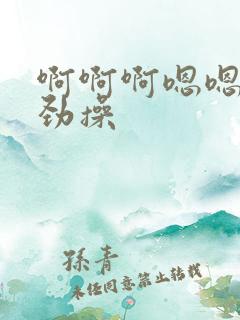 啊啊啊嗯嗯
劲操
孫青
未经同意禁止转载